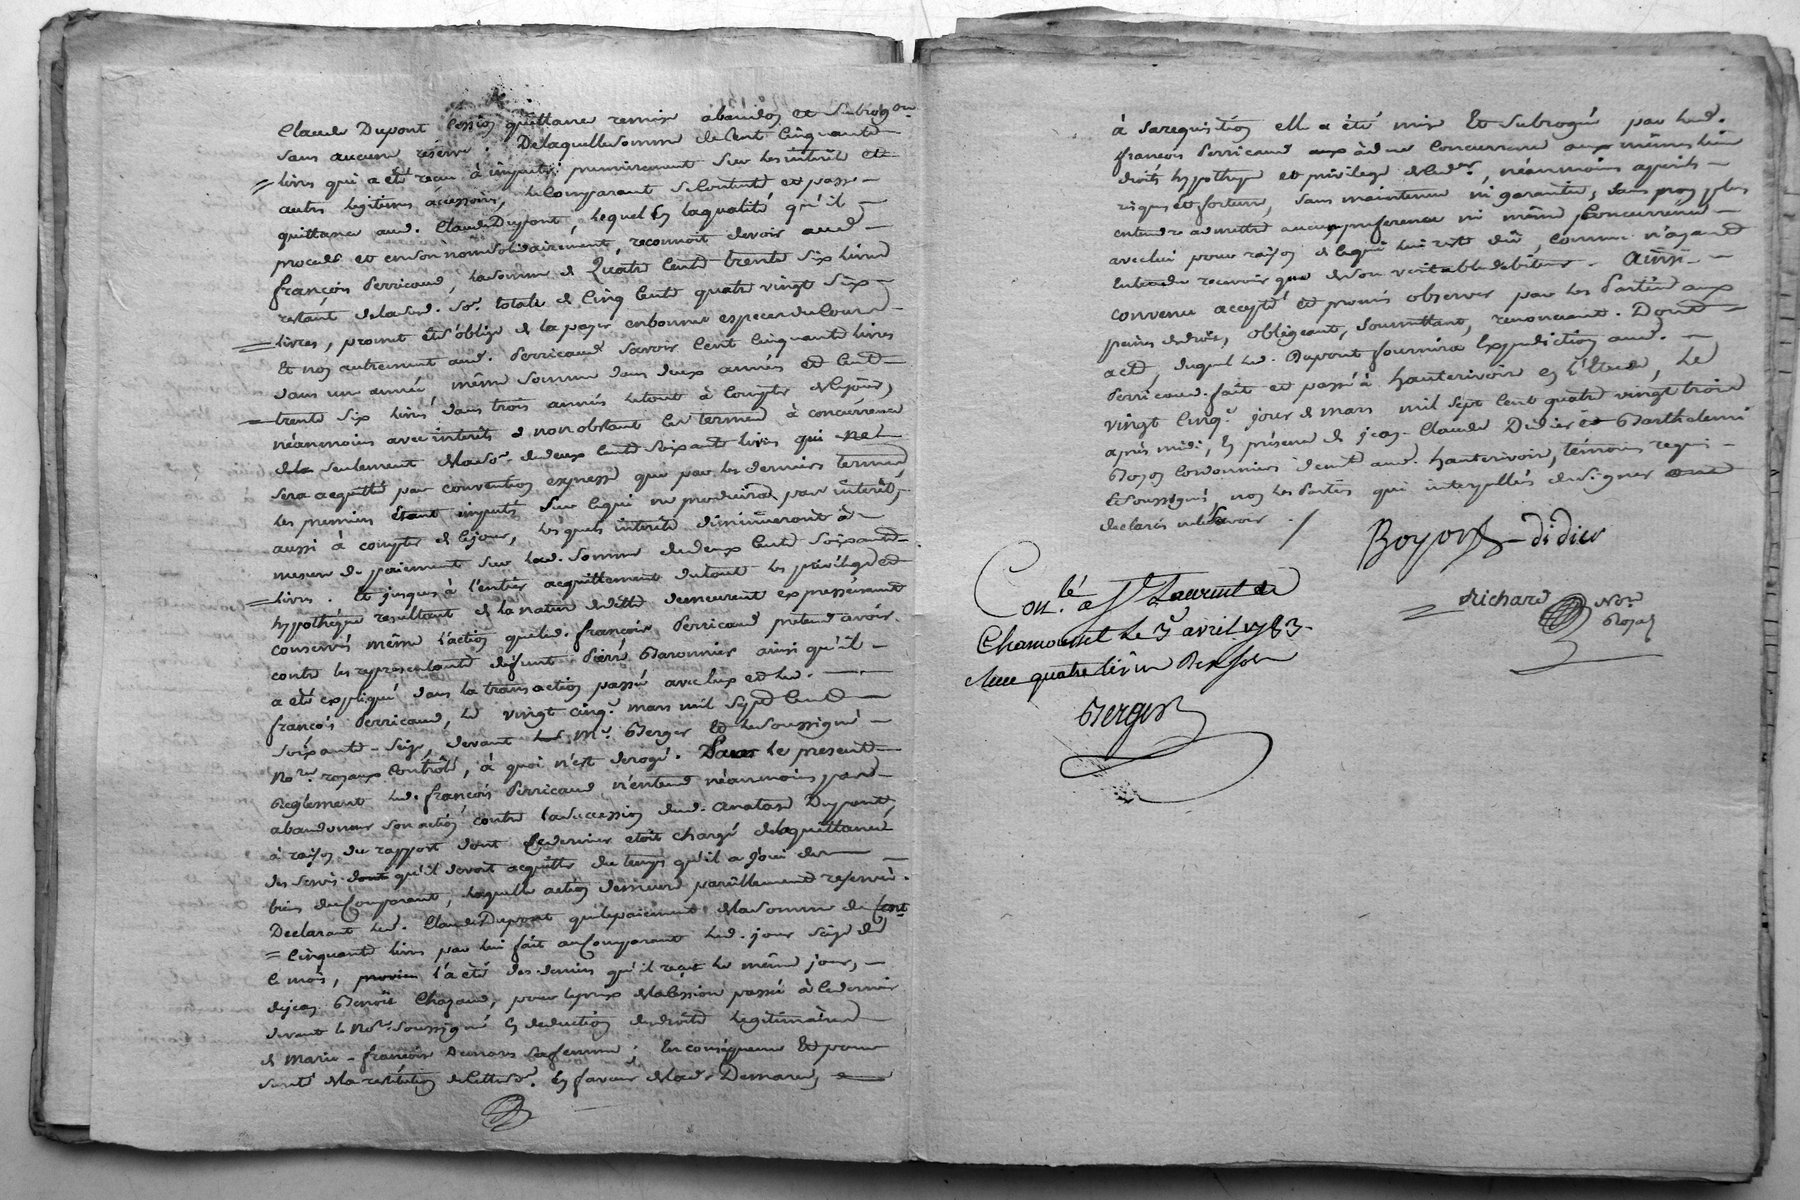 Claude Dupont cession quittance remise abandon et subrog.on
sans aucune réserve. De laquelle somme de Cent Cinquante
livres qui a été recue à imputer premierement sur les interets et
autres legitimes accessoires, le Comparant se Contente et passe
quittance aud. Claude Dupont, lequel en la qualité qu'il
procede et en son nom solidairement, reconnoit devoir aud.
françois Perricaud, la somme de Quatre Cents trente six livres
restant de la susd. So.e totale de Cinq Cents quatre vingt six
livres, promet et s'oblige de la payer en bonnes especes du Cours
Et non autrement aud. Perricaud savoir Cent Cinquante livres
dans une année même somme dans deux années et Cent
trente six livres dans trois années le tout à Compter de ce jour,
néanmoins avec interets et nonobstant les termes à concurrence
seulement de la so.e de deux Cents soixante livres qui ne
sera acquittée par convention expresse que par les derniers termes
les premiers étant imputés sur ce qui ne produira pas interêts,
aussi à compter de ce jour, lesquels interêts diminueront à
mesure de paiement sur lad. somme de deux Cents soixante
livres. Et jusques à l'entier acquittement du tout les privileges et
hypothéque resultant de la nature de dette demeurent expressement
conservés même l'action que led. françois Perricaud pretend avoir
contre les representants défunt Pierre Baronnier ainsi qu'il
a été expliqué dans la transaction passée avec eux et led.
françois Perricaud, le vingt cinq.e mars mil sept Cent
soixante-seize, devant M.e Berger Et le soussigné
No.res royaux Controlé, à quoi n'est derogé. Par le present
Reglement led. françois Perricaud n'entend néanmoins pas
abandonner son action contre la succession dud. Anatase Dupont,
à raison du rapport dont ce dernier etoit chargé de la quittance
des servis qu'il devoit acquitter du temps qu'il a joui des
biens du Comparant, laquelle action demeure pareillement reservée.
Declarant led. Claude Dupont que le paiement de la somme de Cent
Cinquante livres par lui fait au Comparant led. jour seize de
ce mois, l'a été des deniers qu'il reçut le même jour,
de jean Benoit Chazaud, pour le prix de la Cession passée à ce dernier
devant le No.re soussigné en deduction des droits legitimaires
de Marie-françoise Demars sa femme; En conséquence Et pour
sureté de la restitution de cette so.e en faveur de lad. Demars,
à sa requisition elle a été mise Et subrogée par led.
françois Perricaud à due Concurrence aux mêmes lieu
droits hypotheque et privilege de led.er, néanmoins aperils
risques et fortune, sans maintenue ni garantie, sans non plus
entendre admettre aucune preference ni même Concurrence
avec lui pour raison de ce qui lui reste dû, comme n'ayant
entendu recevoir que de son veritable debiteur. Ainsi
convenu accepté et promis observer par les Parties aux
peines de droit, obligeant, soumettant, renonçant. Dont
acte, duquel led. Dupont fournira Expedition aud.
Perricaud. fait et passé à hauterivoire en l'Etude, le
vingt cinq.e jour de mars mil sept Cent quatre vingt trois
après midi, En présence de jean-Claude Didier et Barthelemi
Boyon Cordonniers demt aud. hauterivoire, témoins requis
Et soussignés, non les Parties qui interpellées de signer ont
declaré ne le savoir ./
Boyon Didier
Richard No.re Royal
Con.lé a S.t Laurent de
Chamousset le 3 avril 1783.
Reçu quatre livres dix sols
Berger